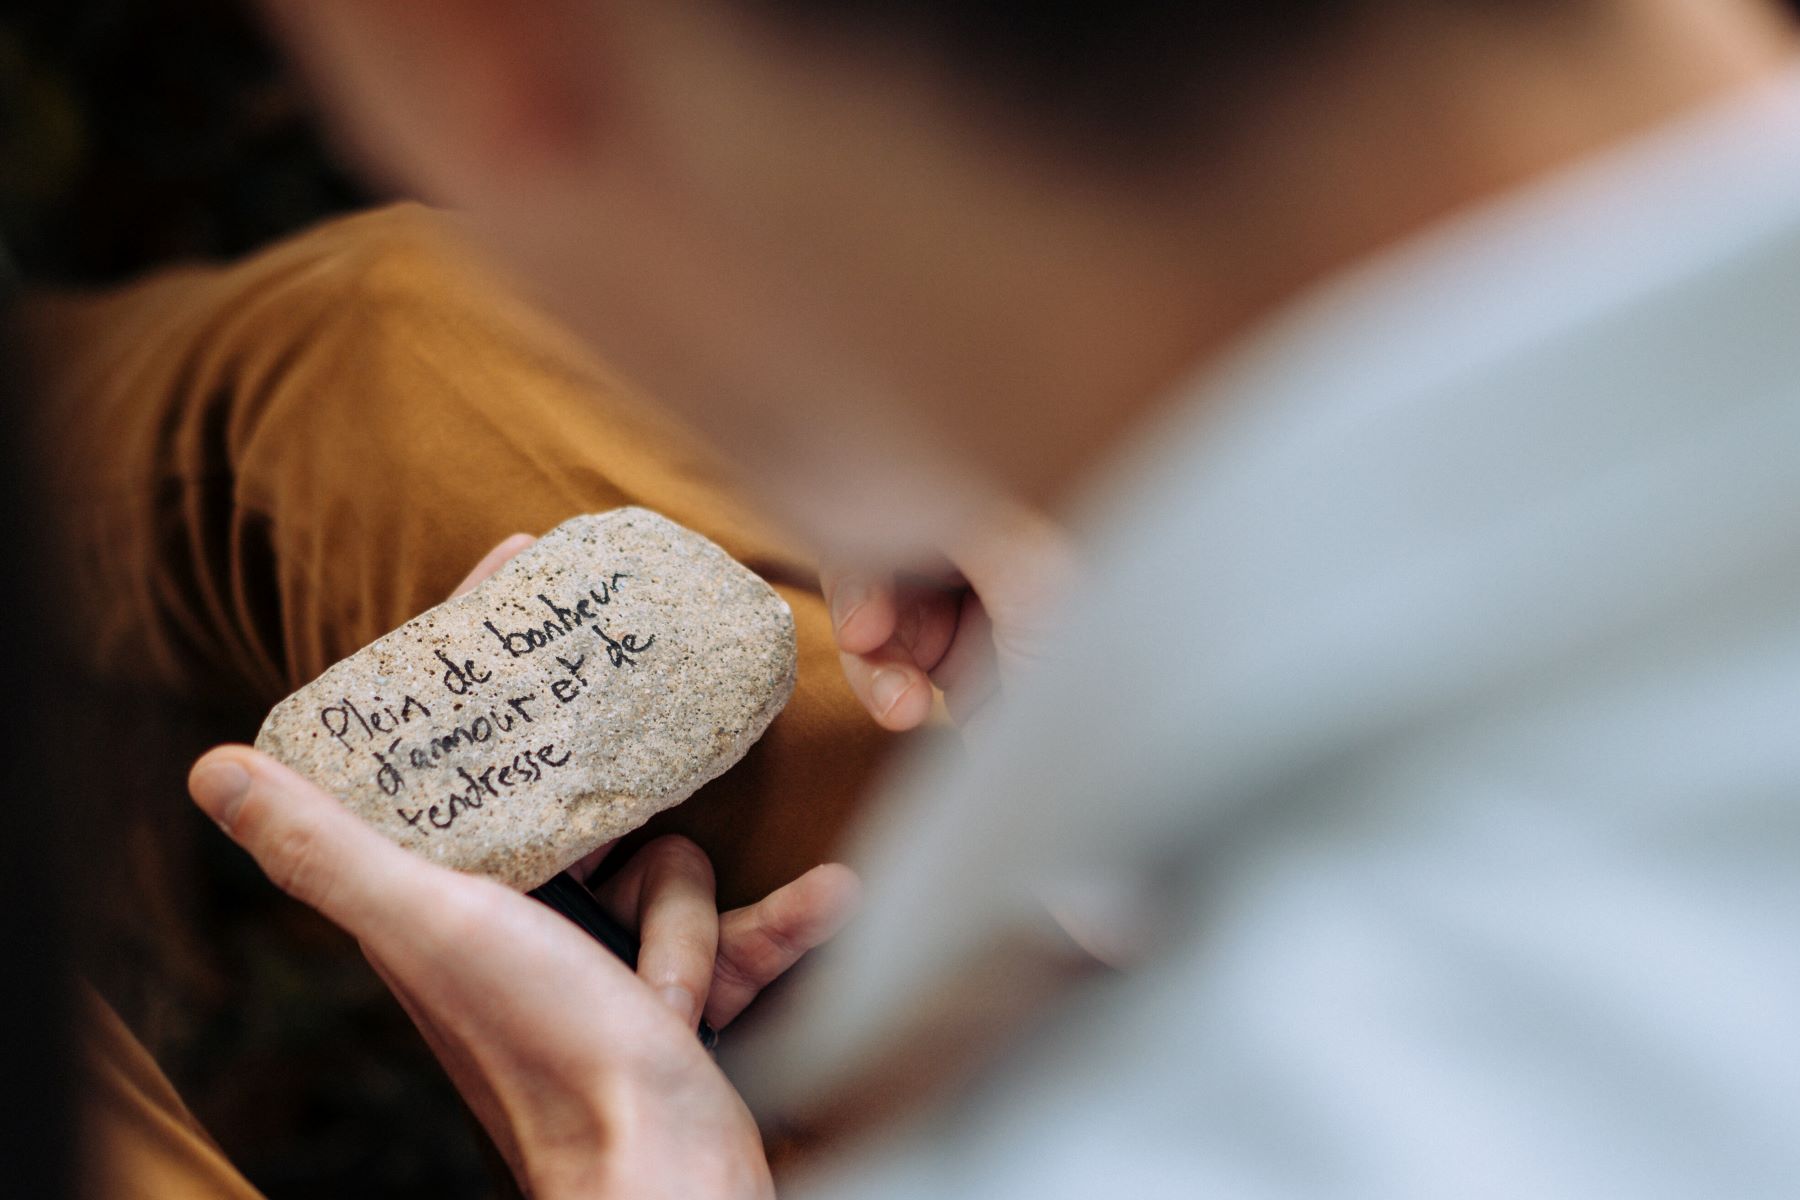 Plein de bonheur
d'amour et de
tendresse